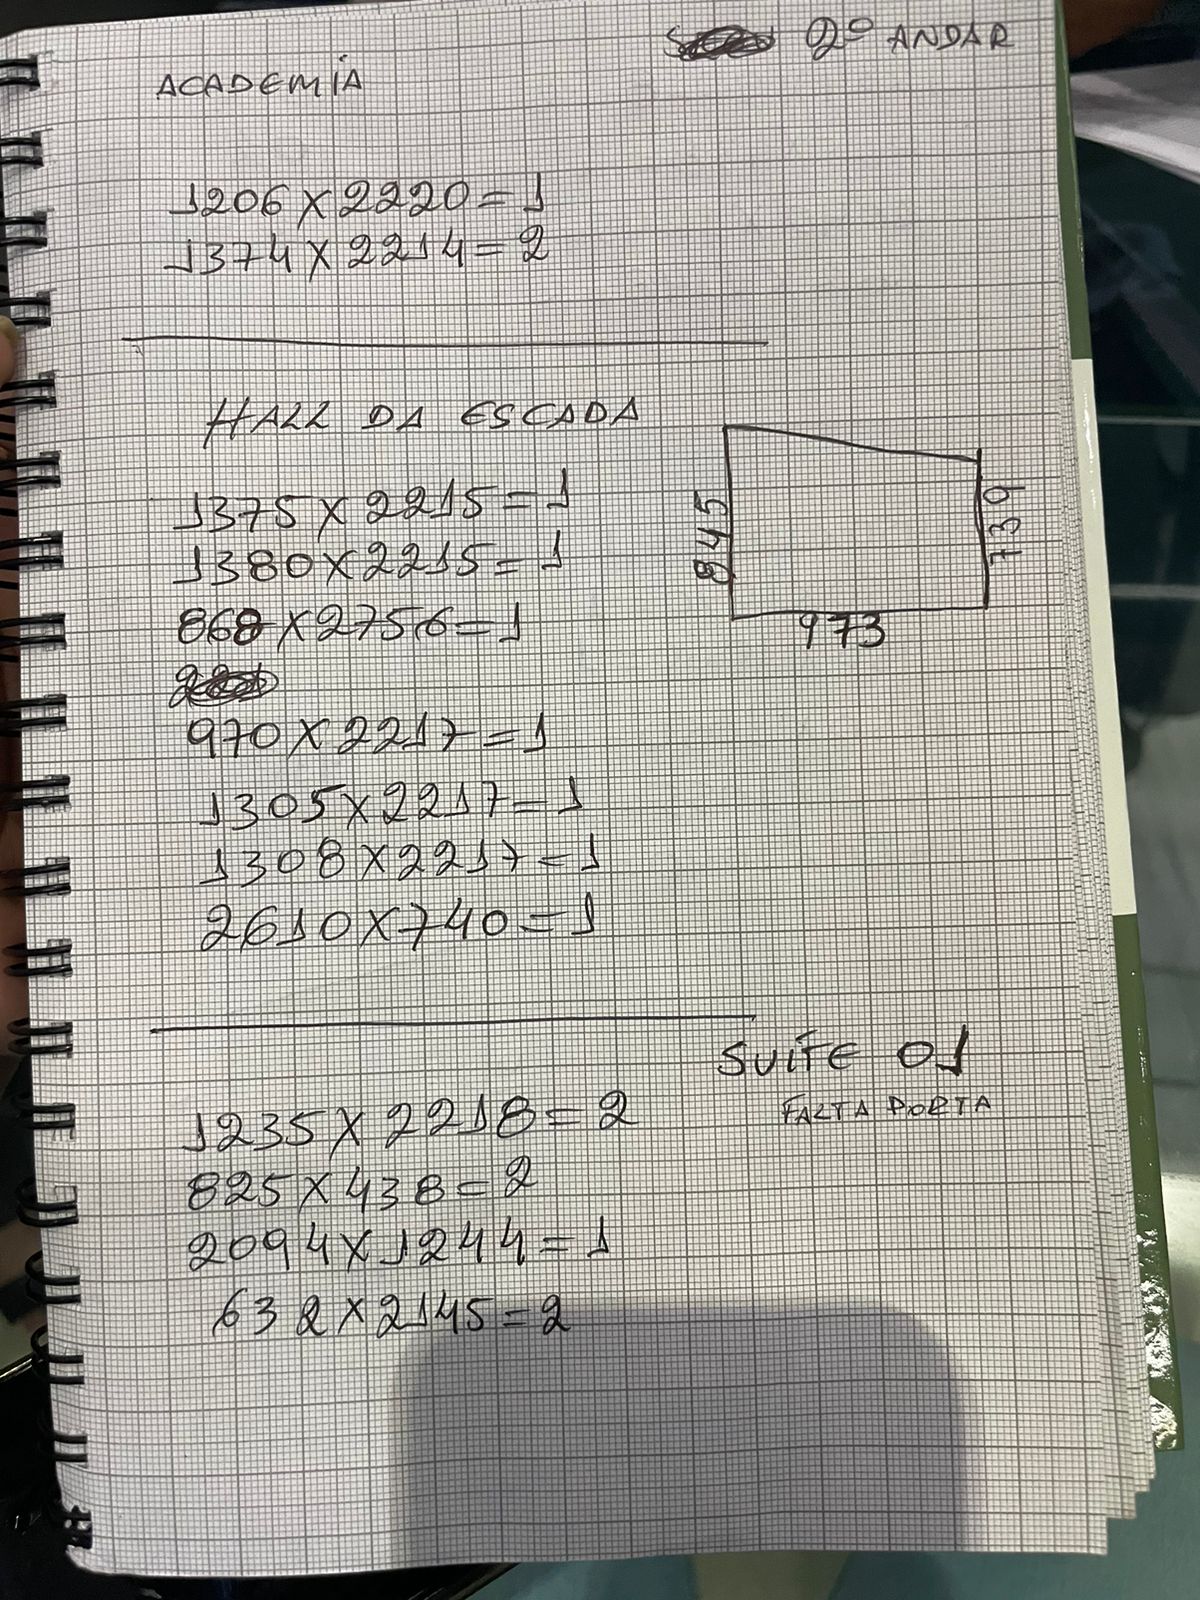 2º ANDAR
ACADEMIA
1206 X 2220 = 1
1374 X 2214 = 2
HALL DA ESCADA
1375 X 2215 = 1
1380 X 2215 = 1
868 X 2756 = 1
970 X 2217 = 1
1305 X 2217 = 1
1308 X 2217 = 1
2610 X 740 = 1
845
739
973
SUÍTE 01
FALTA PORTA
1235 X 2218 = 2
825 X 438 = 2
2094 X 1244 = 1
632 X 2145 = 2